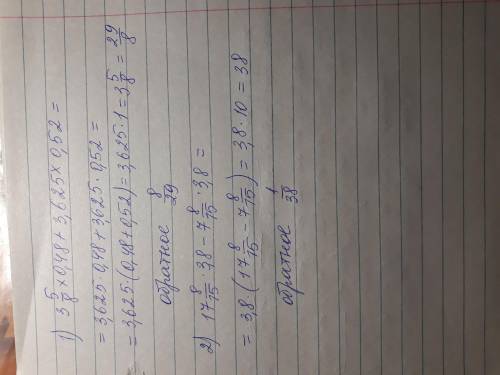 1) 3 5/8 × 0,48 + 3,625 × 0,52 =
= 3,625 · 0,48 + 3,625 · 0,52 =
= 3,625 · (0,48 + 0,52) = 3,625 · 1 = 3 5/8 = 29/8
обратное 8/29
2) 17 8/15 · 3,8 - 7 8/15 · 3,8 =
= 3,8 (17 8/15 - 7 8/15) = 3,8 · 10 = 38
обратное 1/38